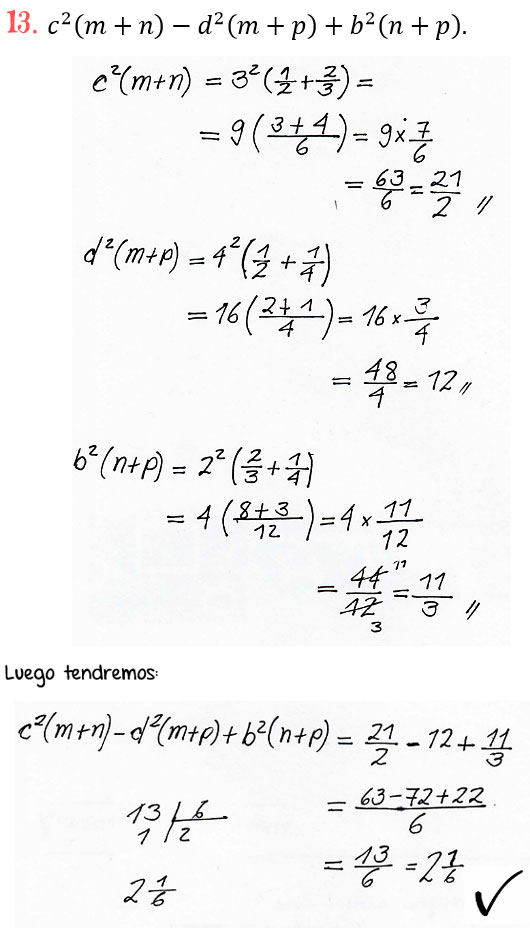 13. c²(m + n) − d²(m + p) + b²(n + p).
c²(m+n) = 3²(1/2 + 2/3) =
= 9((3+4)/6) = 9 × 7/6
= 63/6 = 21/2 //
d²(m+p) = 4²(1/2 + 1/4)
= 16((2+1)/4) = 16 × 3/4
= 48/4 = 12 //
b²(n+p) = 2²(2/3 + 1/4)
= 4((8+3)/12) = 4 × 11/12
= 44/12 11 3 = 11/3 //
Luego tendremos:
c²(m+n) − d²(m+p) + b²(n+p) = 21/2 − 12 + 11/3
= (63−72+22)/6
13 | 6
1 2
= 13/6 = 2 1/6 ✓
2 1/6